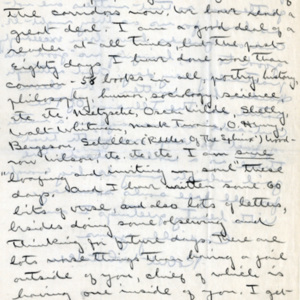 the curious now. We have read a
great deal. I am a good deal of a
reader at all times, but the past
eighty days I have done more than
common — 58 books in all, poetry, history,
philosophy, humor, sociology, science,
etc. etc. Nietzsche, Oscar Wilde, Shelly,
Walt Whitman, Mark Twain, O. Henry,
Bergson, Schiller (Riddles of The Sphinx") Wood-
row Wilson, etc. etc. etc. I am sure
"loafing and inviting my soul" these
days. And I have written some 60
bits of verse, and also lots of letters,
besides doing some drawing and
thinking for future days. There are
lots more things than having a jail
outside of you, chief of which is
having one inside of you. I get